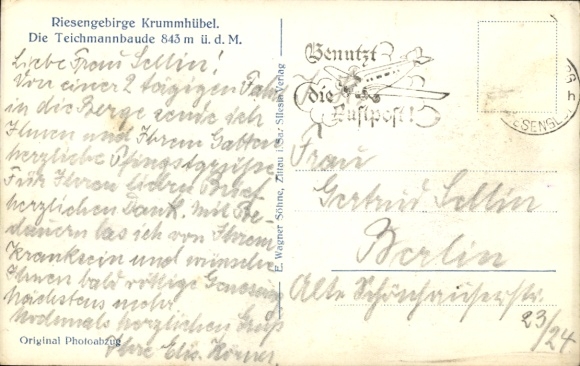 Riesengebirge Krummhübel.
Die Teichmannbaude 843 m ü. d. M.
Liebe Frau Sellin!
Von einer 2 tägigen Fahrt
in die Berge sende ich
Ihnen und Ihrem Gatten
herzliche Pfingstgrüße
Für Ihren lieben Brief
herzlichen Dank, mit Be-
dauern las ich von Ihrem
Kranksein und wünsche
Ihnen bald völlige Genesung
nächstens mehr
nochmals herzlichen Gruß
Ihre Elis. Körner.
Original Photoabzug
E. Wagner Söhne, Zittau i. Sa. Silesia Verlag
Benutzt
die
Luftpost!
Frau
Gertrud Sellin
Berlin
Alte Schönhauserstr.
23/24